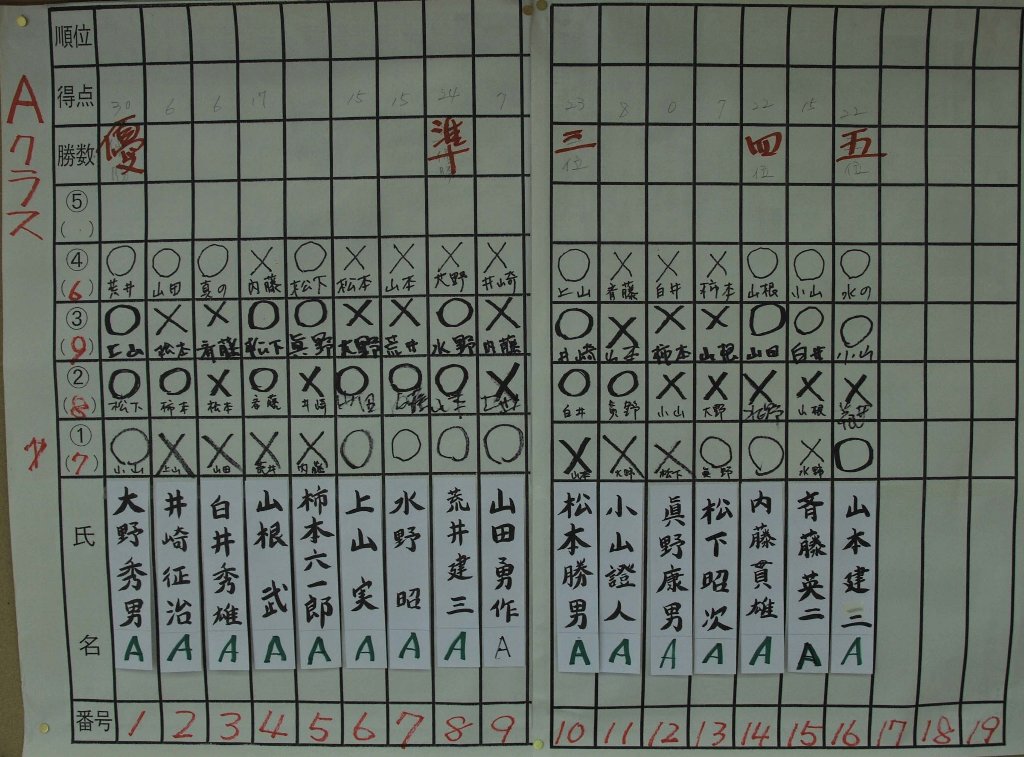 Aクラス
順位
得点 30 6 6 17 15 15 24 7 23 8 0 7 22 15 22
勝数 優 準 三位 四位 五位
⑤ ( )
④ (6) ○ ○ ○ × ○ × × × × ○ × × × ○ ○ ○
荒井 山田 真の 内藤 松下 松本 山本 大野 井崎 上山 斉藤 白井 柿本 山根 小山 水の
③ (9) ○ × × ○ ○ × × ○ × ○ × × × ○ ○ ○
上山 松本 斉藤 松下 眞野 大野 荒井 水野 内藤 井崎 山本 柿本 山根 山田 白井 小山
② (8) ○ ○ × ○ × ○ ○ ○ × ○ ○ × × × × ×
松下 柿本 松本 斉藤 井崎 白井 眞野 小山 大野 水野 山根 荒井
① (7) ○ × × × × ○ ○ ○ ○ × × × ○ ○ × ○
小山 上山 山田 荒井 内藤 山本 大野 松下 眞野 水野
氏名 大野秀男 井崎征治 白井秀雄 山根武 柿本六一郎 上山実 水野昭 荒井建三 山田勇作 松本勝男 小山證人 眞野康男 松下昭次 内藤貫雄 斉藤英二 山本建三
A A A A A A A A A A A A A A A A
番号 1 2 3 4 5 6 7 8 9 10 11 12 13 14 15 16 17 18 19